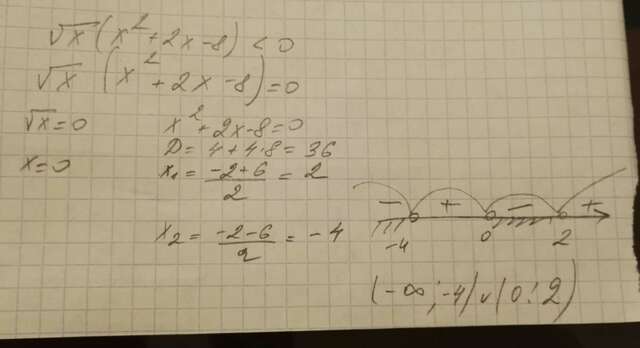 √x (x² + 2x - 8) < 0
√x (x² + 2x - 8) = 0
√x = 0
x² + 2x - 8 = 0
D = 4 + 4·8 = 36
x = 0
x₁ = (-2+6)/2 = 2
x₂ = (-2-6)/2 = -4
- + - +
-4 0 2
(-∞; -4) ∪ (0; 2)